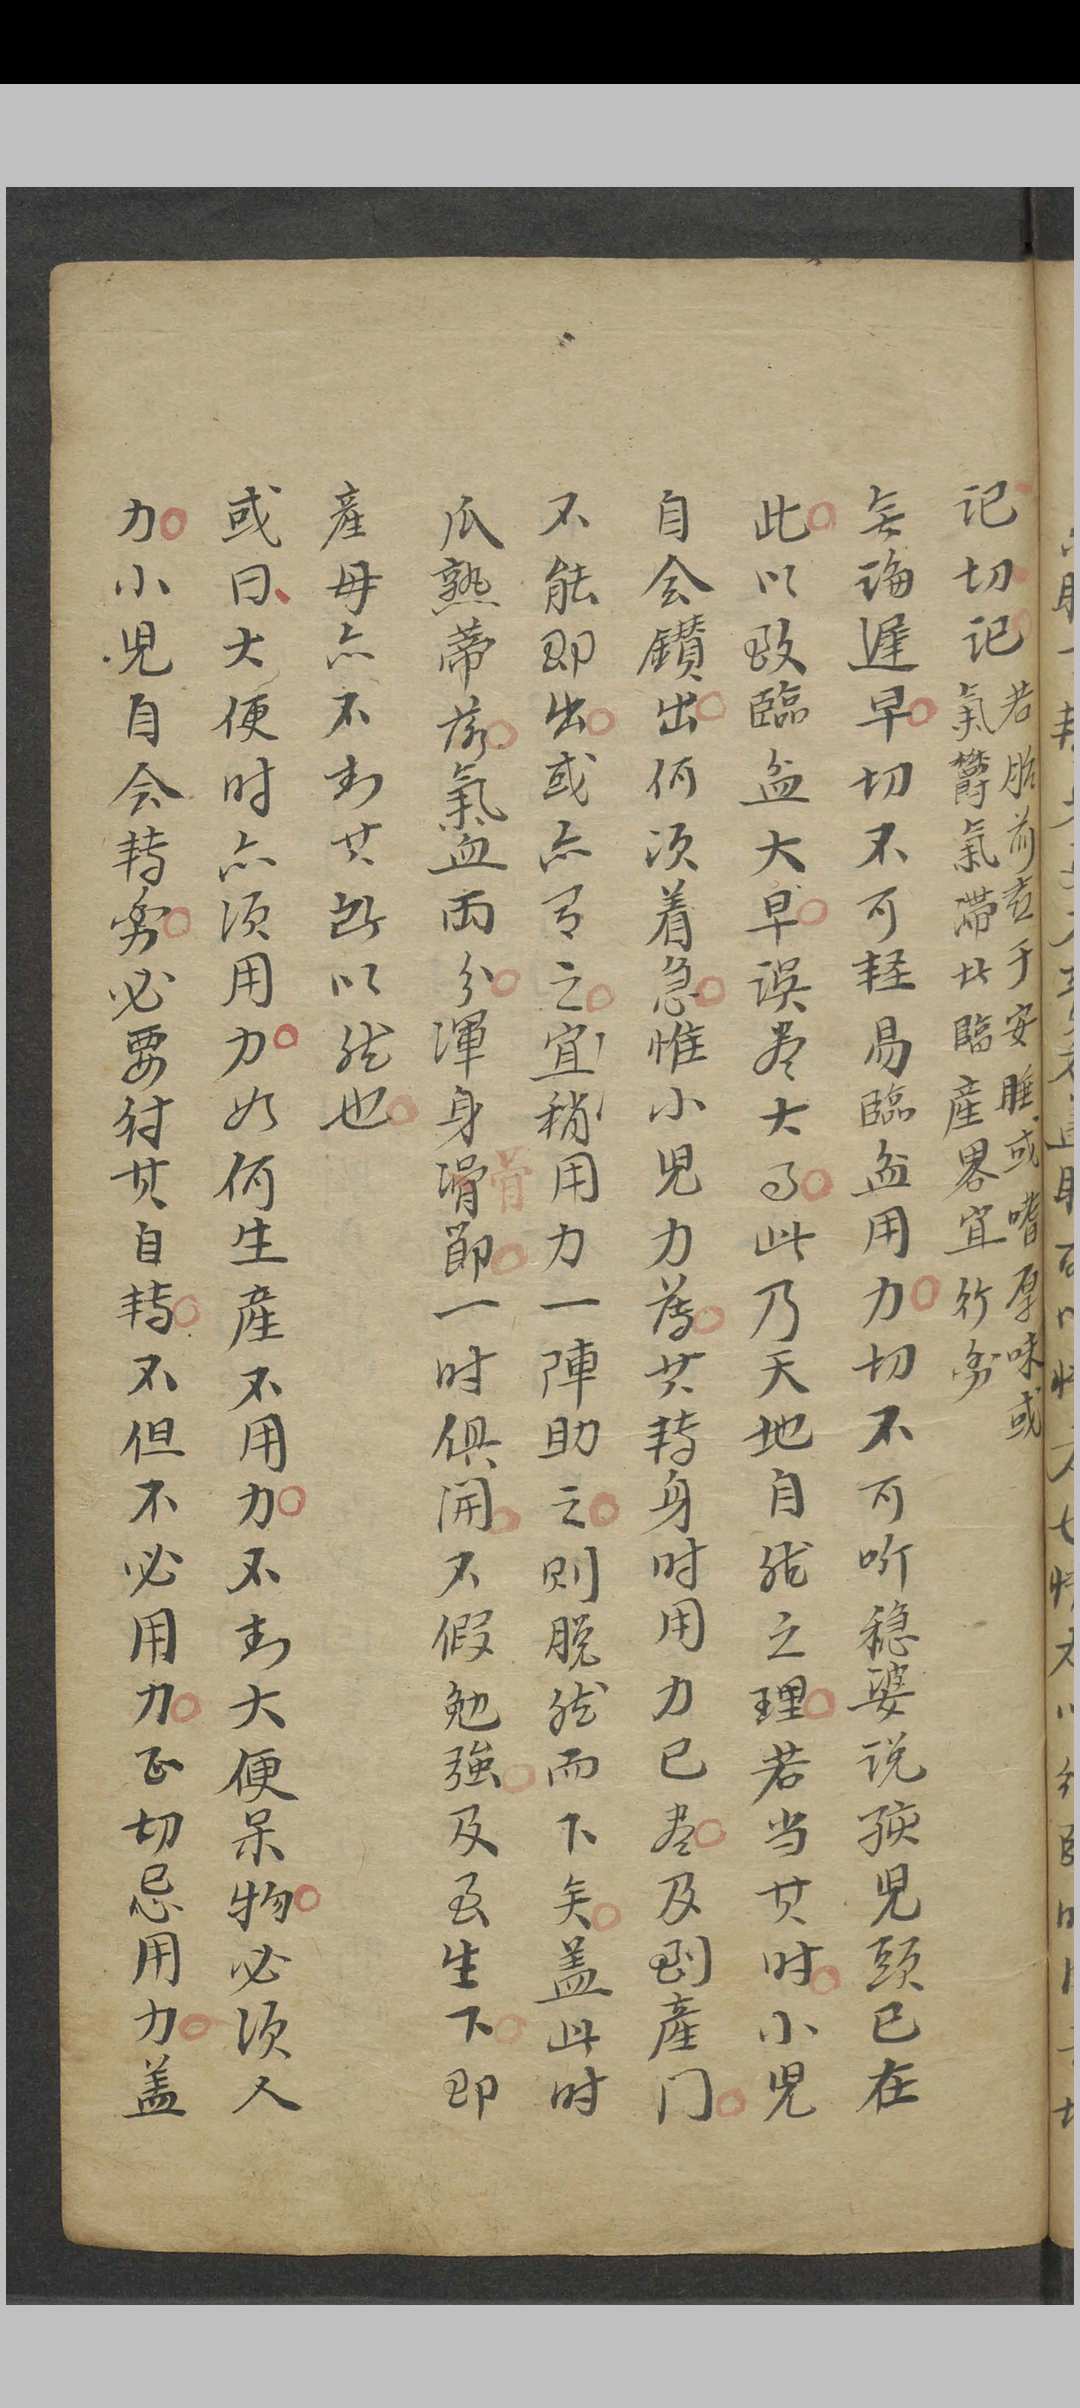 记切记
若胎前忘于安睡或嗜厚味或
氣欝氣滯北臨産畧宜行劳
无論遲早切不可轻易臨盆用力切不可听稳婆说孩児頭已在
此以致臨盆大早误尽大事此乃天地自然之理若当其时小児
自会鑚出何须着急惟小児力薄其转身时用力已尽及到産门
不能即出或亦有之宜稍用力一陣助之则脱然而下矣盖此时
瓜熟蒂落氣血兩分渾身骨節一时俱開不假勉強及至生下即
産毋亦不知其所以然也
或曰大便时亦须用力如何生産不用力不知大便呆物必须人
力小児自会转身必要待其自转不但不必用力正切忌用力盖